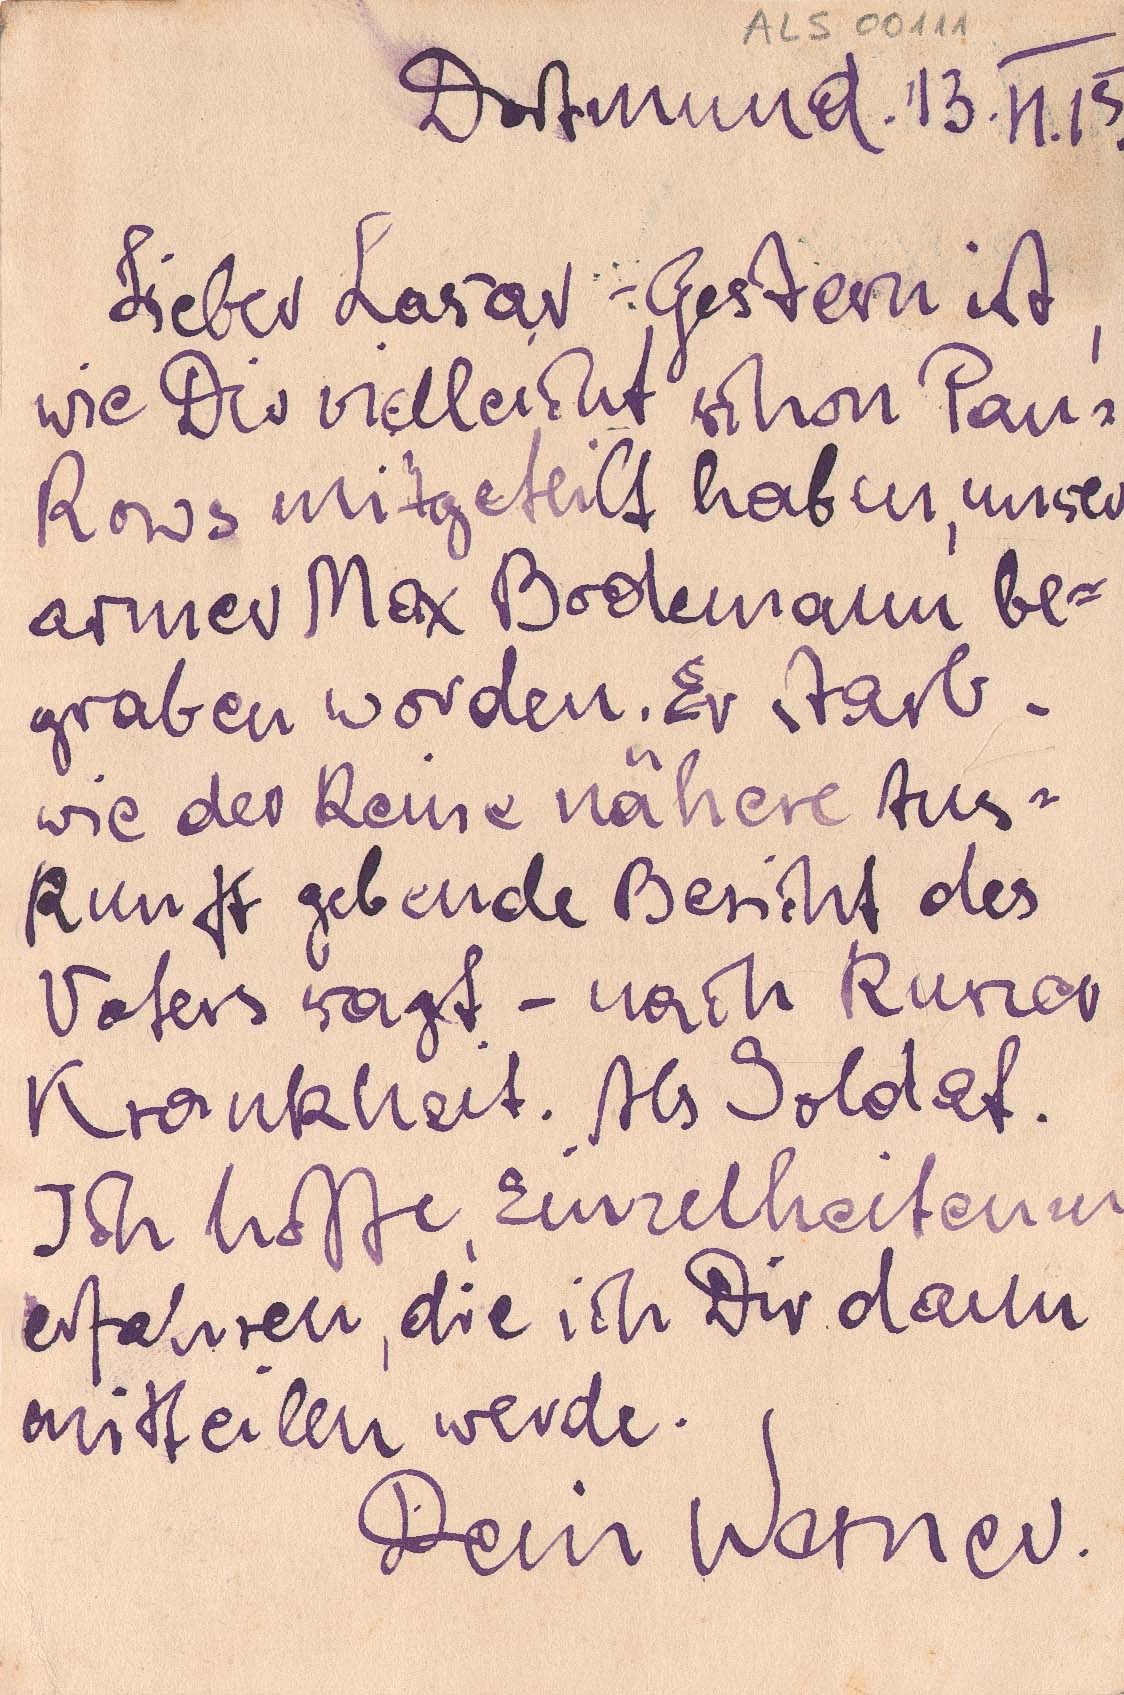 ALS 00111
Dortmund. 13.VI.15.
Lieber Lasar - Gestern ist,
wie Dir vielleicht schon Pan=
kows mitgeteilt haben, unser
armer Max Bodemann be=
graben worden. Er starb -
wie der keine nähere Aus=
kunft gebende Bericht des
Vaters sagt - nach kurzer
Krankheit. Als Soldat.
Ich hoffe, Einzelheiten zu
erfahren, die ich Dir dann
mitteilen werde.
Dein Werner.